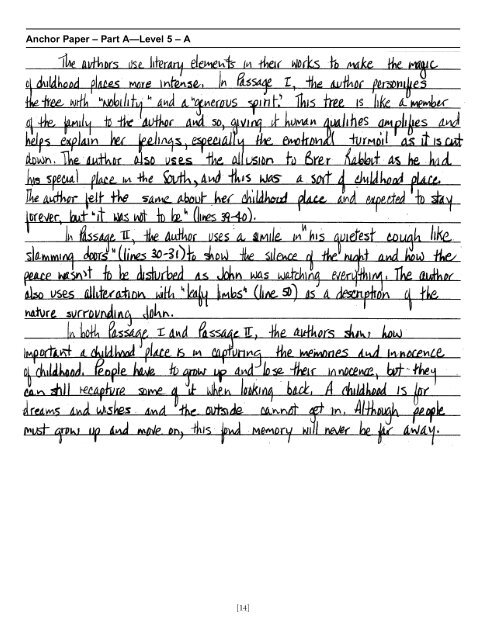 Anchor Paper – Part A—Level 5 – A
The authors use literary elements in their works to make the magic
of childhood places more intense. In Passage I, the author personifies
the tree with "nobility" and a "generous spirit." This tree is like a member
of the family to the author and so, giving it human qualities amplifies and
helps explain her feelings, especially the emotional turmoil as it is cut
down. The author also uses the allusion to Brer Rabbit as he had
his special place in the South, and this was a sort of childhood place.
The author felt the same about her childhood place and expected to stay
forever, but "it was not to be" (lines 39-40).
In Passage II, the author uses a simile in "his quietest cough like
slamming doors" (lines 30-31) to show the silence of the night and how the
peace wasn't to be disturbed as John was watching everything. The author
also uses alliteration with "leafy limbs" (line 50) as a description of the
nature surrounding John.
In both Passage I and Passage II, the authors show how
important a childhood place is in capturing the memories and innocence
of childhood. People have to grow up and lose their innocence, but they
can still recapture some of it when looking back. A childhood is for
dreams and wishes and the outside cannot get in. Although people
must grow up and move on, this fond memory will never be far away.
[14]